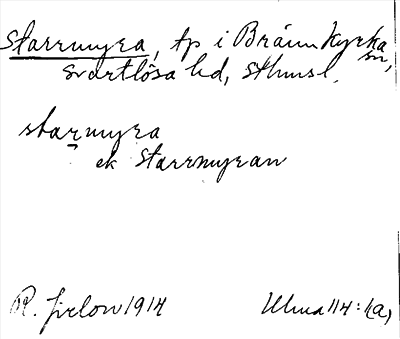 Starrmyra, tp i Brännkyrka sn,
Svartlösa hd, Sthmsl.
starmyra
ek Starrmyran
R. Jirlow 1914
Ulma 114:1(a)